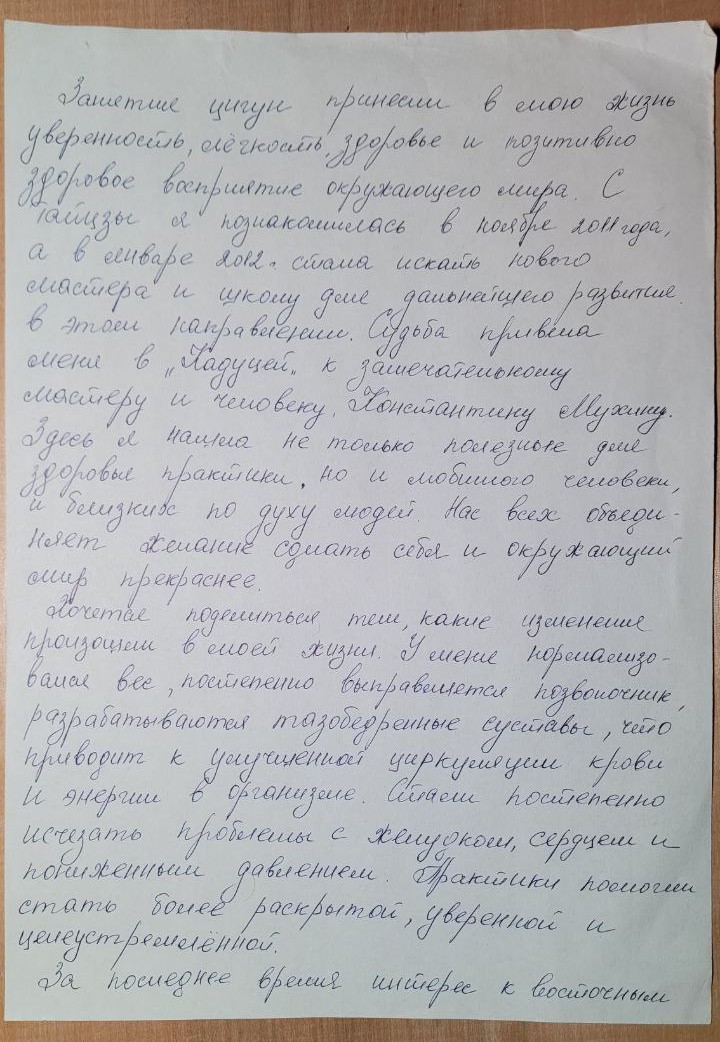 Занятие цигун принесли в мою жизнь
уверенность, лёгкость, здоровье и позитивно
здоровое восприятие окружающего мира. С
тайцзы я познакомилась в ноябре 2011 года,
а в январе 2012г. стала искать нового
мастера и школу для дальнейшего развития
в этом направлении. Судьба привела
меня в „Кадуцей„ к замечательному
мастеру и человеку, Константину Мухину.
Здесь я нашла не только полезные для
здоровья практики, но и любимого человека,
и близких по духу людей. Нас всех объеди-
няет желание сделать себя и окружающий
мир прекраснее.
Хочется поделиться тем, какие изменения
произошли в моей жизни. У меня нормализо-
вался вес, постепенно выправляется позвоночник,
разрабатываются тазобедренные суставы, что
приводит к улучшенной циркуляции крови
и энергии в организме. Стали постепенно
исчезать проблемы с желудком, сердцем и
пониженным давлением. Практики помогли
стать более раскрытой, уверенной и
целеустремлённой.
За последнее время интерес к восточным